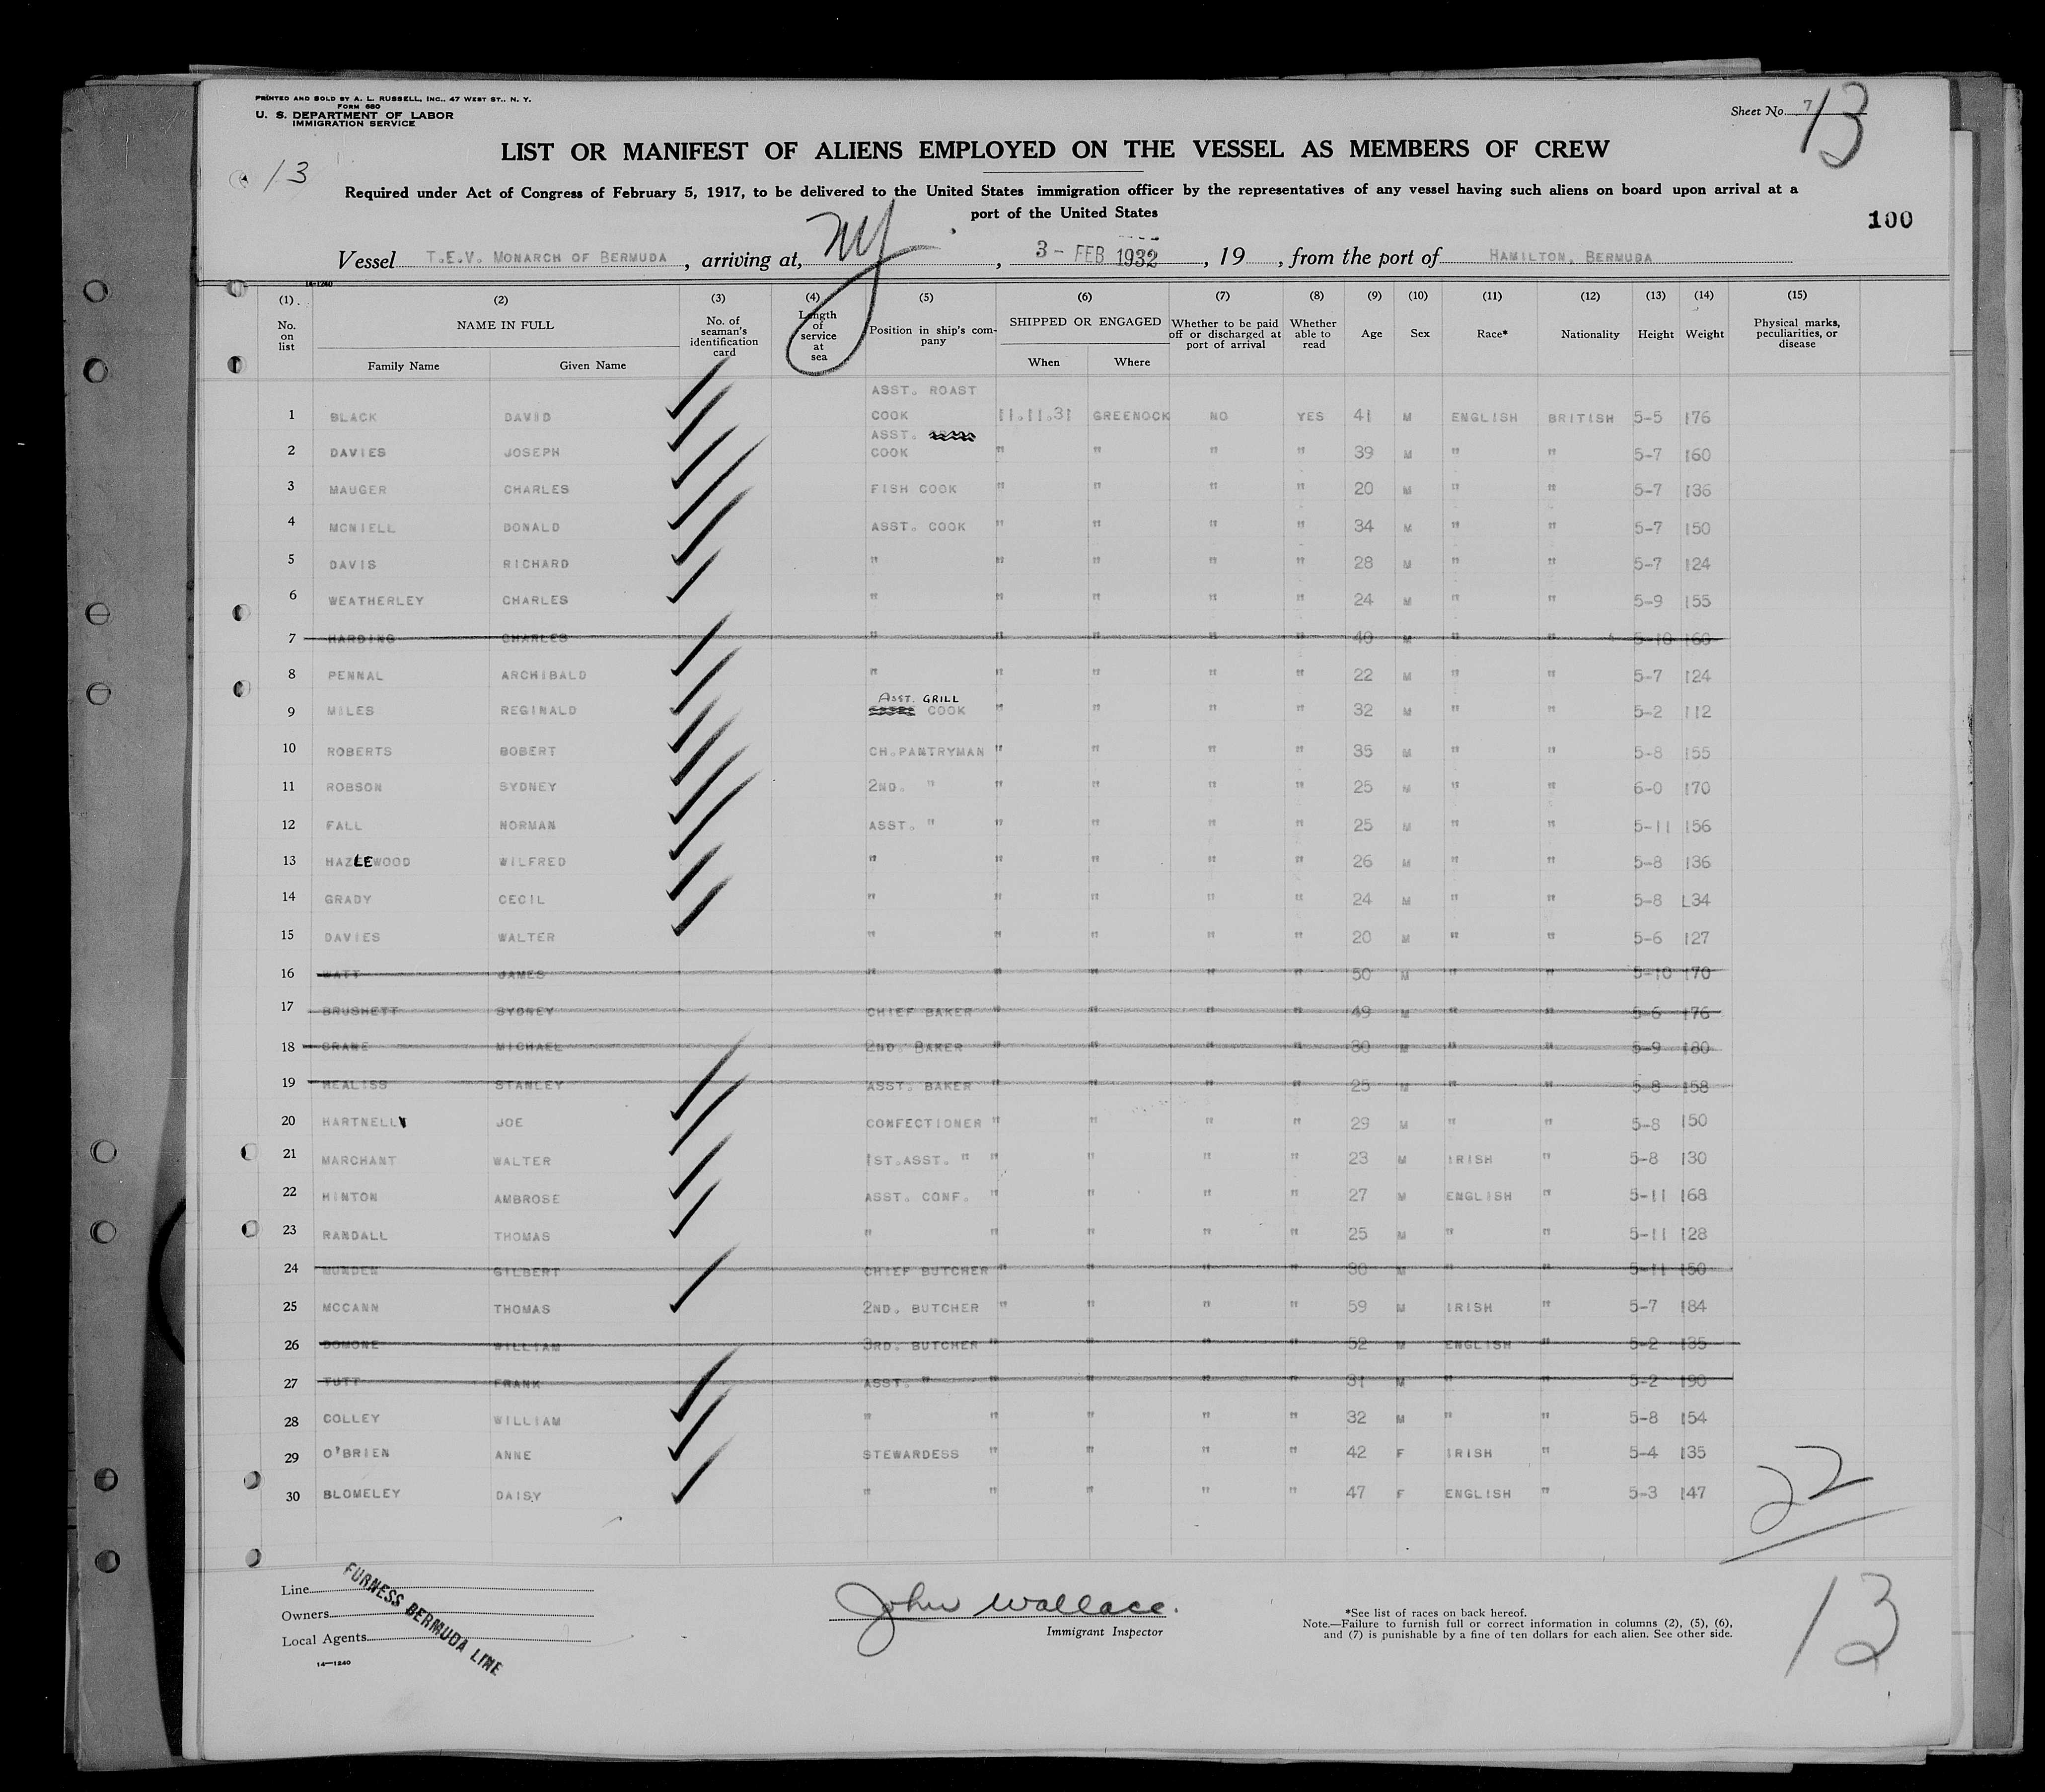 PRINTED AND SOLD BY A. L. RUSSELL, INC., 47 WEST ST., N. Y.
FORM 680
U. S. DEPARTMENT OF LABOR
IMMIGRATION SERVICE
Sheet No. 7 13
13
LIST OR MANIFEST OF ALIENS EMPLOYED ON THE VESSEL AS MEMBERS OF CREW
Required under Act of Congress of February 5, 1917, to be delivered to the United States immigration officer by the representatives of any vessel having such aliens on board upon arrival at a
port of the United States
100
Vessel T.E.V. MONARCH OF BERMUDA, arriving at, NY, 3 - FEB 1932, 19 , from the port of HAMILTON, BERMUDA
14-1240
(1) (2) (3) (4) (5) (6) (7) (8) (9) (10) (11) (12) (13) (14) (15)
No. on list NAME IN FULL Family Name Given Name No. of seaman's identification card Length of service at sea Position in ship's company SHIPPED OR ENGAGED When Where Whether to be paid off or discharged at port of arrival Whether able to read Age Sex Race* Nationality Height Weight Physical marks, peculiarities, or disease
1 BLACK DAVID ASST. ROAST COOK 11.11.31 GREENOCK NO YES 41 M ENGLISH BRITISH 5-5 176
2 DAVIES JOSEPH ASST. COOK " " " " 39 M " " 5-7 160
3 MAUGER CHARLES FISH COOK " " " " 20 M " " 5-7 136
4 MCNIELL DONALD ASST. COOK " " " " 34 M " " 5-7 150
5 DAVIS RICHARD " " " " " 28 M " " 5-7 124
6 WEATHERLEY CHARLES " " " " " 24 M " " 5-9 155
7 HARDING CHARLES " " " " " 40 M " " 5-10 160
8 PENNAL ARCHIBALD " " " " " 22 M " " 5-7 124
9 MILES REGINALD ASST. GRILL COOK " " " " 32 M " " 5-2 112
10 ROBERTS BOBERT CH.PANTRYMAN " " " " 35 M " " 5-8 155
11 ROBSON SYDNEY 2ND. " " " " " 25 M " " 6-0 170
12 FALL NORMAN ASST. " " " " " 25 M " " 5-11 156
13 HAZLEWOOD WILFRED " " " " " 26 M " " 5-8 136
14 GRADY CECIL " " " " " 24 M " " 5-8 L34
15 DAVIES WALTER " " " " " 20 M " " 5-6 127
16 WATT JAMES " " " " " 50 M " " 5-10 170
17 BRUSHETT SYDNEY CHIEF BAKER " " " " 49 M " " 5-6 176
18 CRANE MICHAEL 2ND. BAKER " " " " 30 M " " 5-9 180
19 HEALISS STANLEY ASST. BAKER " " " " 25 M " " 5-8 158
20 HARTNELL JOE CONFECTIONER " " " " 29 M " " 5-8 150
21 MARCHANT WALTER 1ST.ASST. " " " " " 23 M IRISH " 5-8 130
22 HINTON AMBROSE ASST. CONF. " " " " 27 M ENGLISH " 5-11 168
23 RANDALL THOMAS " " " " " 25 M " " 5-11 128
24 MUNDEN GILBERT CHIEF BUTCHER " " " " 30 M " " 5-11 150
25 MCCANN THOMAS 2ND. BUTCHER " " " " 59 M IRISH " 5-7 184
26 DOMONE WILLIAM 3RD. BUTCHER " " " " 52 M ENGLISH " 5-2 135
27 TUTT FRANK ASST. " " " " " 31 M " " 5-2 190
28 COLLEY WILLIAM " " " " " 32 M " " 5-8 154
29 O'BRIEN ANNE STEWARDESS " " " " 42 F IRISH " 5-4 135
30 BLOMELEY DAISY " " " " " 47 F ENGLISH " 5-3 147
22
Line
Owners
Local Agents
FURNESS BERMUDA LINE
14-1240
John Wallace.
Immigrant Inspector
*See list of races on back hereof.
Note.—Failure to furnish full or correct information in columns (2), (5), (6),
and (7) is punishable by a fine of ten dollars for each alien. See other side.
13